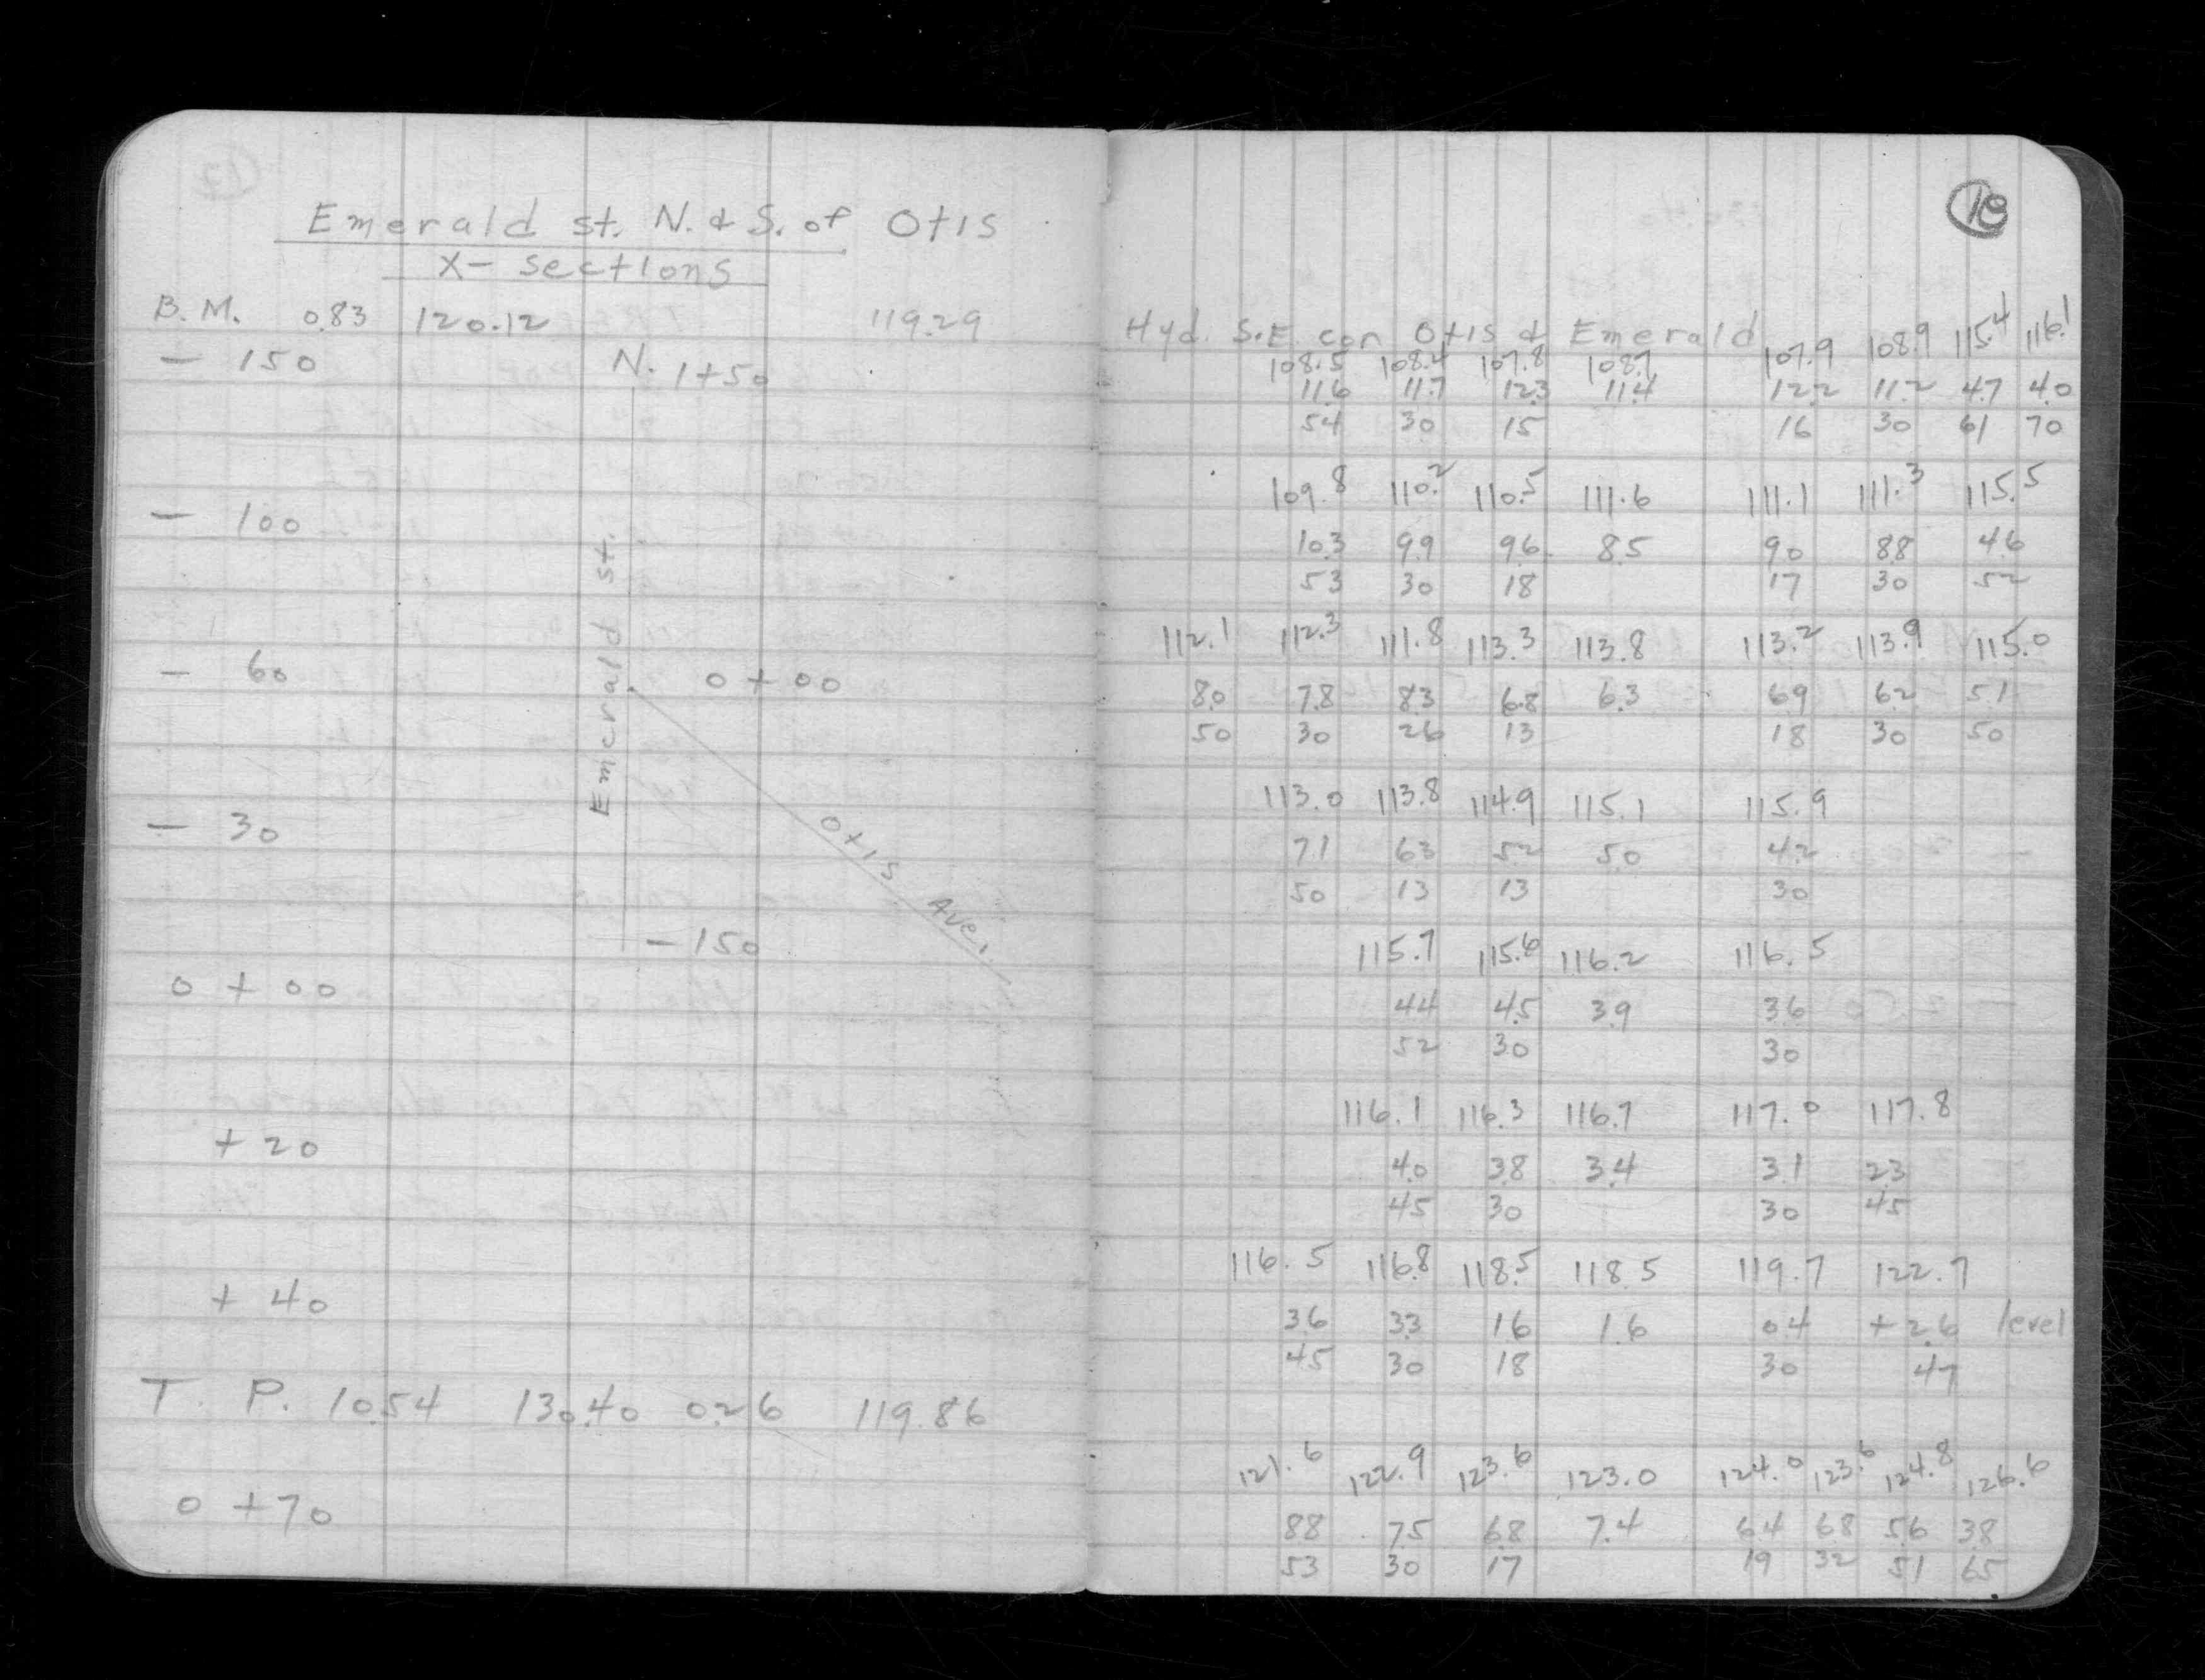 Emerald st. N. & S. of Otis
X- sections
B. M. 0.83 120.12 119.29
- 150 N. 1+50
- 100
Emerald st.
- 60
0 + 00
- 30
Otis Ave.
- 150
0 + 00
+ 20
+ 40
T. P. 10.54 130.40 0.26 119.86
0 + 70
18
Hyd. S.E. cor Otis & Emerald
108.5 108.4 107.8 108.7 107.9 108.9 115.4 116.1
11.6 11.7 12.3 11.4 12.2 11.2 4.7 4.0
54 30 15 16 30 61 70
109.8 110.2 110.5 111.6 111.1 111.3 115.5
10.3 9.9 9.6 8.5 9.0 8.8 4.6
53 30 18 17 30 52
112.1 112.3 111.8 113.3 113.8 113.2 113.9 115.0
8.0 7.8 8.3 6.8 6.3 6.9 6.2 5.1
50 30 26 13 18 30 50
113.0 113.8 114.9 115.1 115.9
7.1 6.3 5.2 5.0 4.2
50 13 13 30
115.7 115.6 116.2 116.5
4.4 4.5 3.9 3.6
52 30 30
116.1 116.3 116.7 117.0 117.8
4.0 3.8 3.4 3.1 2.3
45 30 30 45
116.5 116.8 118.5 118.5 119.7 122.7
3.6 3.3 1.6 1.6 0.4 + 2.6 level
45 30 18 30 47
121.6 122.9 123.6 123.0 124.0 123.6 124.8 126.6
8.8 7.5 6.8 7.4 6.4 6.8 5.6 3.8
53 30 17 19 32 51 65